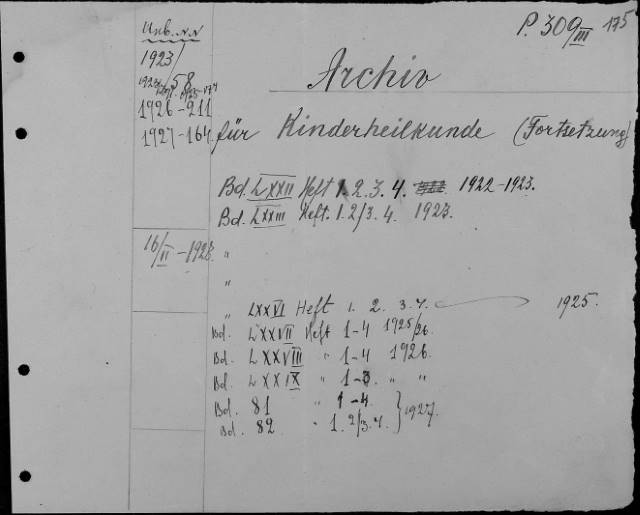 P. 309/III 175
Unb. N.N
1923/
1924/58
1925-174
1926-211
1927-164
16/II-1928.
Archiv
für Kinderheilkunde (Fortsetzung)
Bd. LXXII Heft 1. 2. 3. 4. 1922-1923.
Bd. LXXIII Heft. 1. 2/3. 4. 1923.
"
"
" LXXVI Heft 1. 2. 3. 4. 1925.
Bd. LXXVII Heft 1-4 1925/26.
Bd. LXXVIII " 1-4 1926.
Bd. LXXIX " 1-3. " "
Bd. 81 " 1-4. } 1927.
Bd. 82. " 1. 2/3. 4.